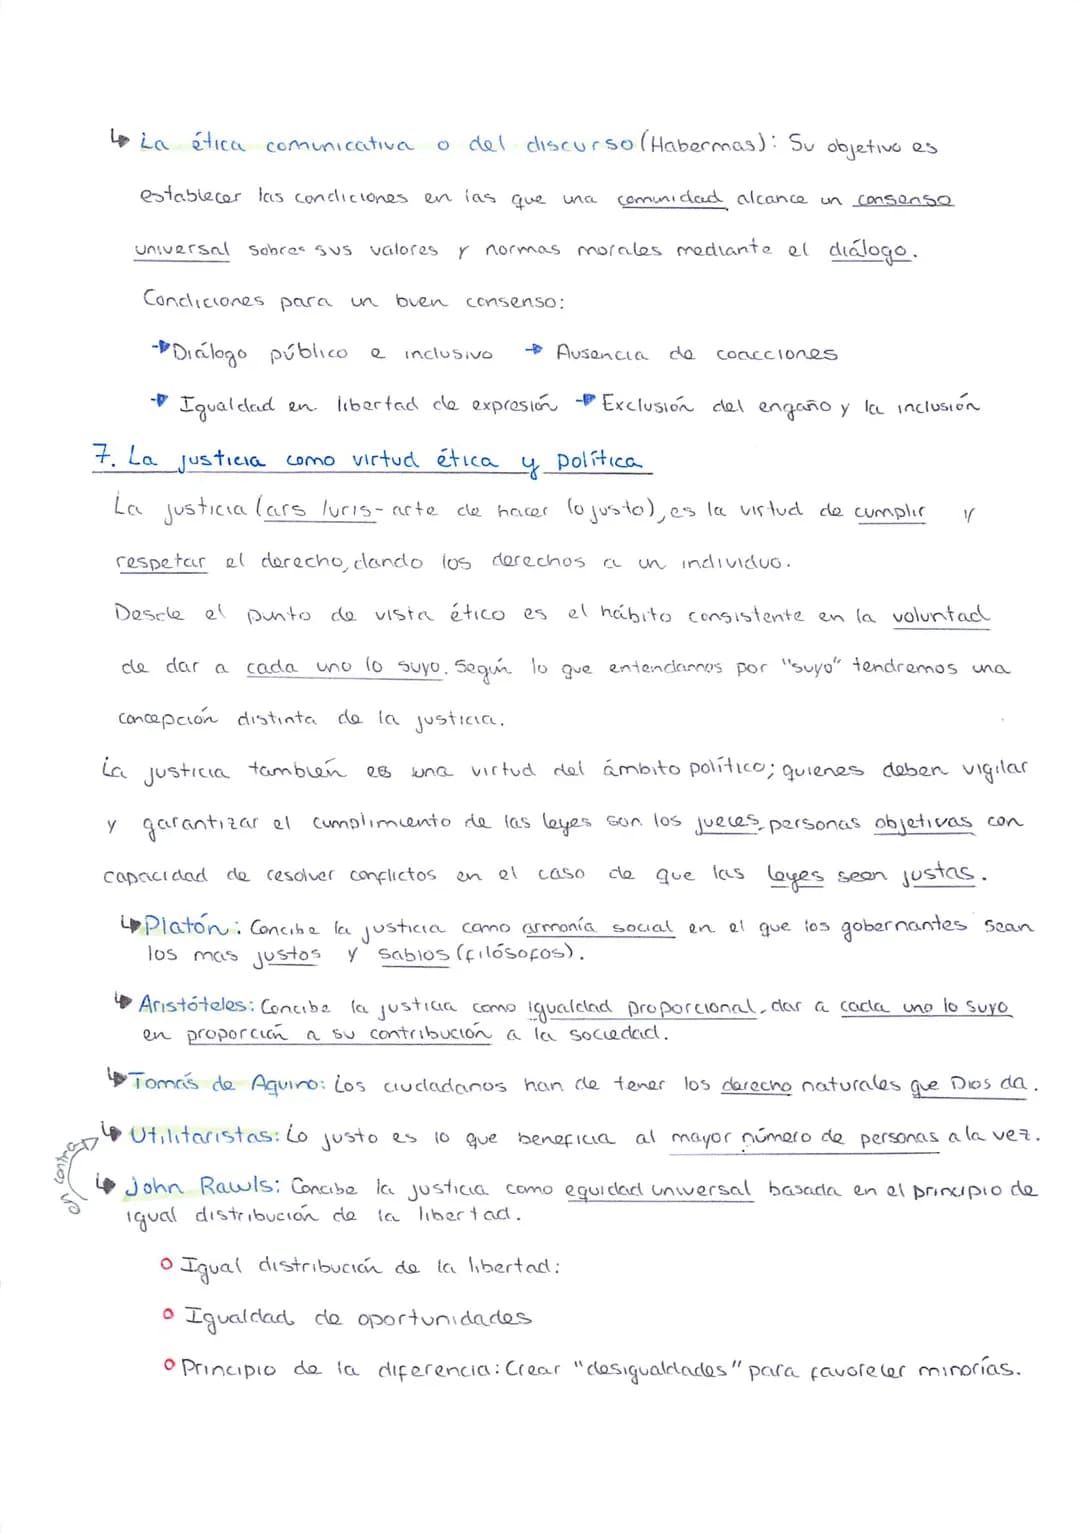 La ética comunicativa o del discurso (Habermas): Su objetivo es
establecer las condiciones en las que una comunidad alcance un consenso
universal sobres sus valores y normas morales mediante el diálogo.
Condiciones para un buen consenso:
Diálogo público e inclusivo → Ausencia de coacciones
Igualdad en libertad de expresión → Exclusión del engaño y la inclusión
7. La justicia como virtud ética y política
La justicia (ars Iuris- arte de hacer lo justo), es la virtud de cumplir y
respetar el derecho, dando los derechos a un individuo.
Desde el punto de vista ético es el hábito consistente en la voluntad
de dar a cada uno lo suyo. Según lo que entendamos por "suyo" tendremos una
concepción distinta de la justicia.
La justicia también es una virtud del ámbito político; quienes deben vigilar
y garantizar el cumplimiento de las leyes son los jueces, personas objetivas con
capacidad de resolver conflictos en el caso de que las leyes sean justas.
Platón: Concibe la justicia como armonía social en el que los gobernantes sean
los mas justos y sabios (filósofos).
Aristóteles: Concibe la justicia como igualdad proporcional, dar a cada uno lo suyo
en proporción a su contribución a la sociedad.
Tomás de Aquino: Los ciudadanos han de tener los derecho naturales que Dios da.
Utilitaristas: Lo justo es lo que beneficia al mayor número de personas a la vez.
contra
John Rawls: Concibe la justicia como equidad universal basada en el principio de
igual distribución de la libertad.
Igual distribución de la libertad:
Igualdad de oportunidades
Principio de la diferencia: Crear "desigualdades" para favorecer minorías.